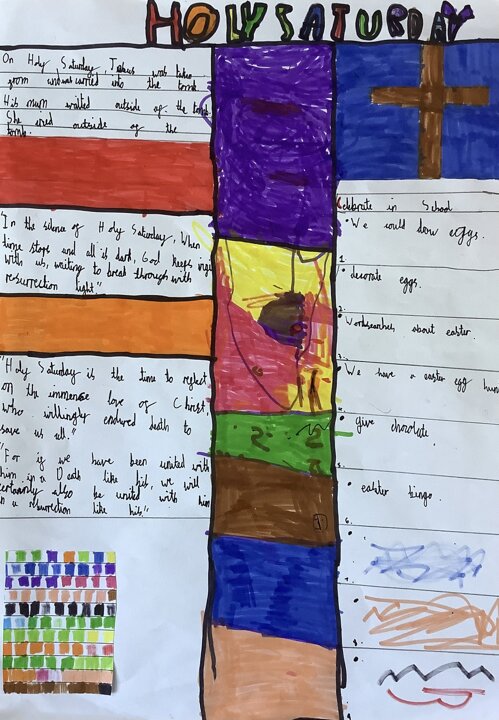 HOLY SATURDAY
On Holy Saturday, Jesus was taken
from and carried into the tomb
His mum waited outside of the tomb.
She cried outside of the
tomb.
"In the silence of Holy Saturday, When
time stops and all is dark, God keeps vigil
with us, waiting to break through with
resurrection light"
"Holy Saturday is the time to reflect
on the immense love of Christ,
who willingly endured death to
save us all."
"For if we have been united with
him in a Death like his, we will
certainly also be united with him
in a resurrection like his."
Celebrate in School
"We could draw eggs.
1.
decorate eggs.
2.
Wordsearches about easter
3.
We have a easter egg hun
give chocolate
5.
easter bingo
6.